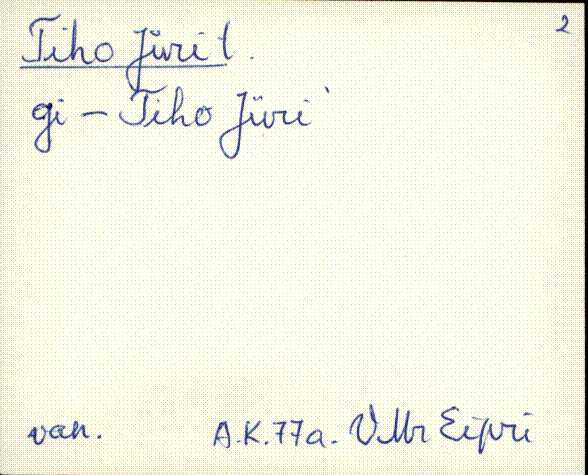 2
Tiho Jüri t.
gi - Tiho Jüri`
van. A.K.77a. VMr Eipri